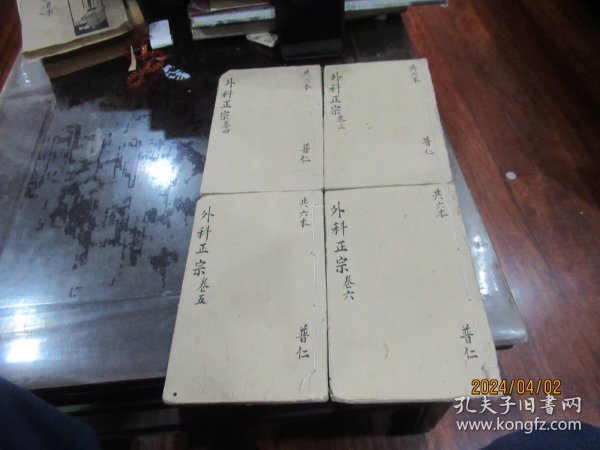 共六本
外科正宗卷四
普仁
共六本
外科正宗卷二
普仁
共六本
外科正宗卷五
普仁
共六本
外科正宗卷六
普仁
2024/04/02
孔夫子旧书网
www.kongfz.com